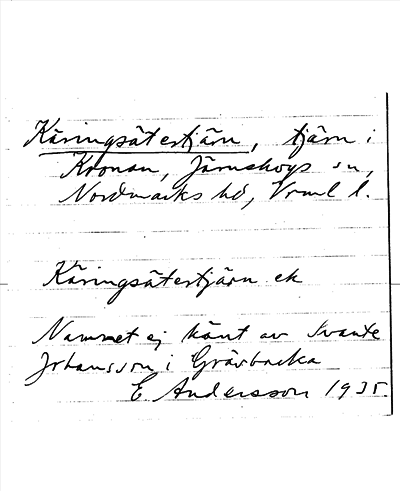 Käringsätertjärn, tjärn i
Kronan, Järnskogs sn,
Nordmarks hd, Vrml l.
Käringsätertjärn ek
Namnet ej känt av Svante
Johansson i Gräsbacka
E. Andersson 1935.